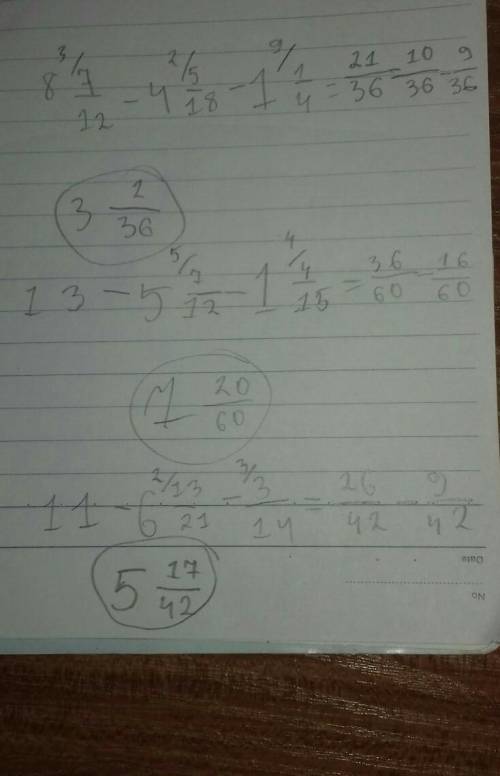 8 3/ 7/12 - 4 2/ 5/18 - 1 9/ 1/4 = 21/36 - 10/36 - 9/36
3 2/36
13 - 5 5/ 7/12 - 1 4/ 4/15 = 36/60 - 16/60
7 20/60
11 - 6 2/ 13/21 - 3/ 3/14 = 26/42 - 9/42
5 17/42
Date
No